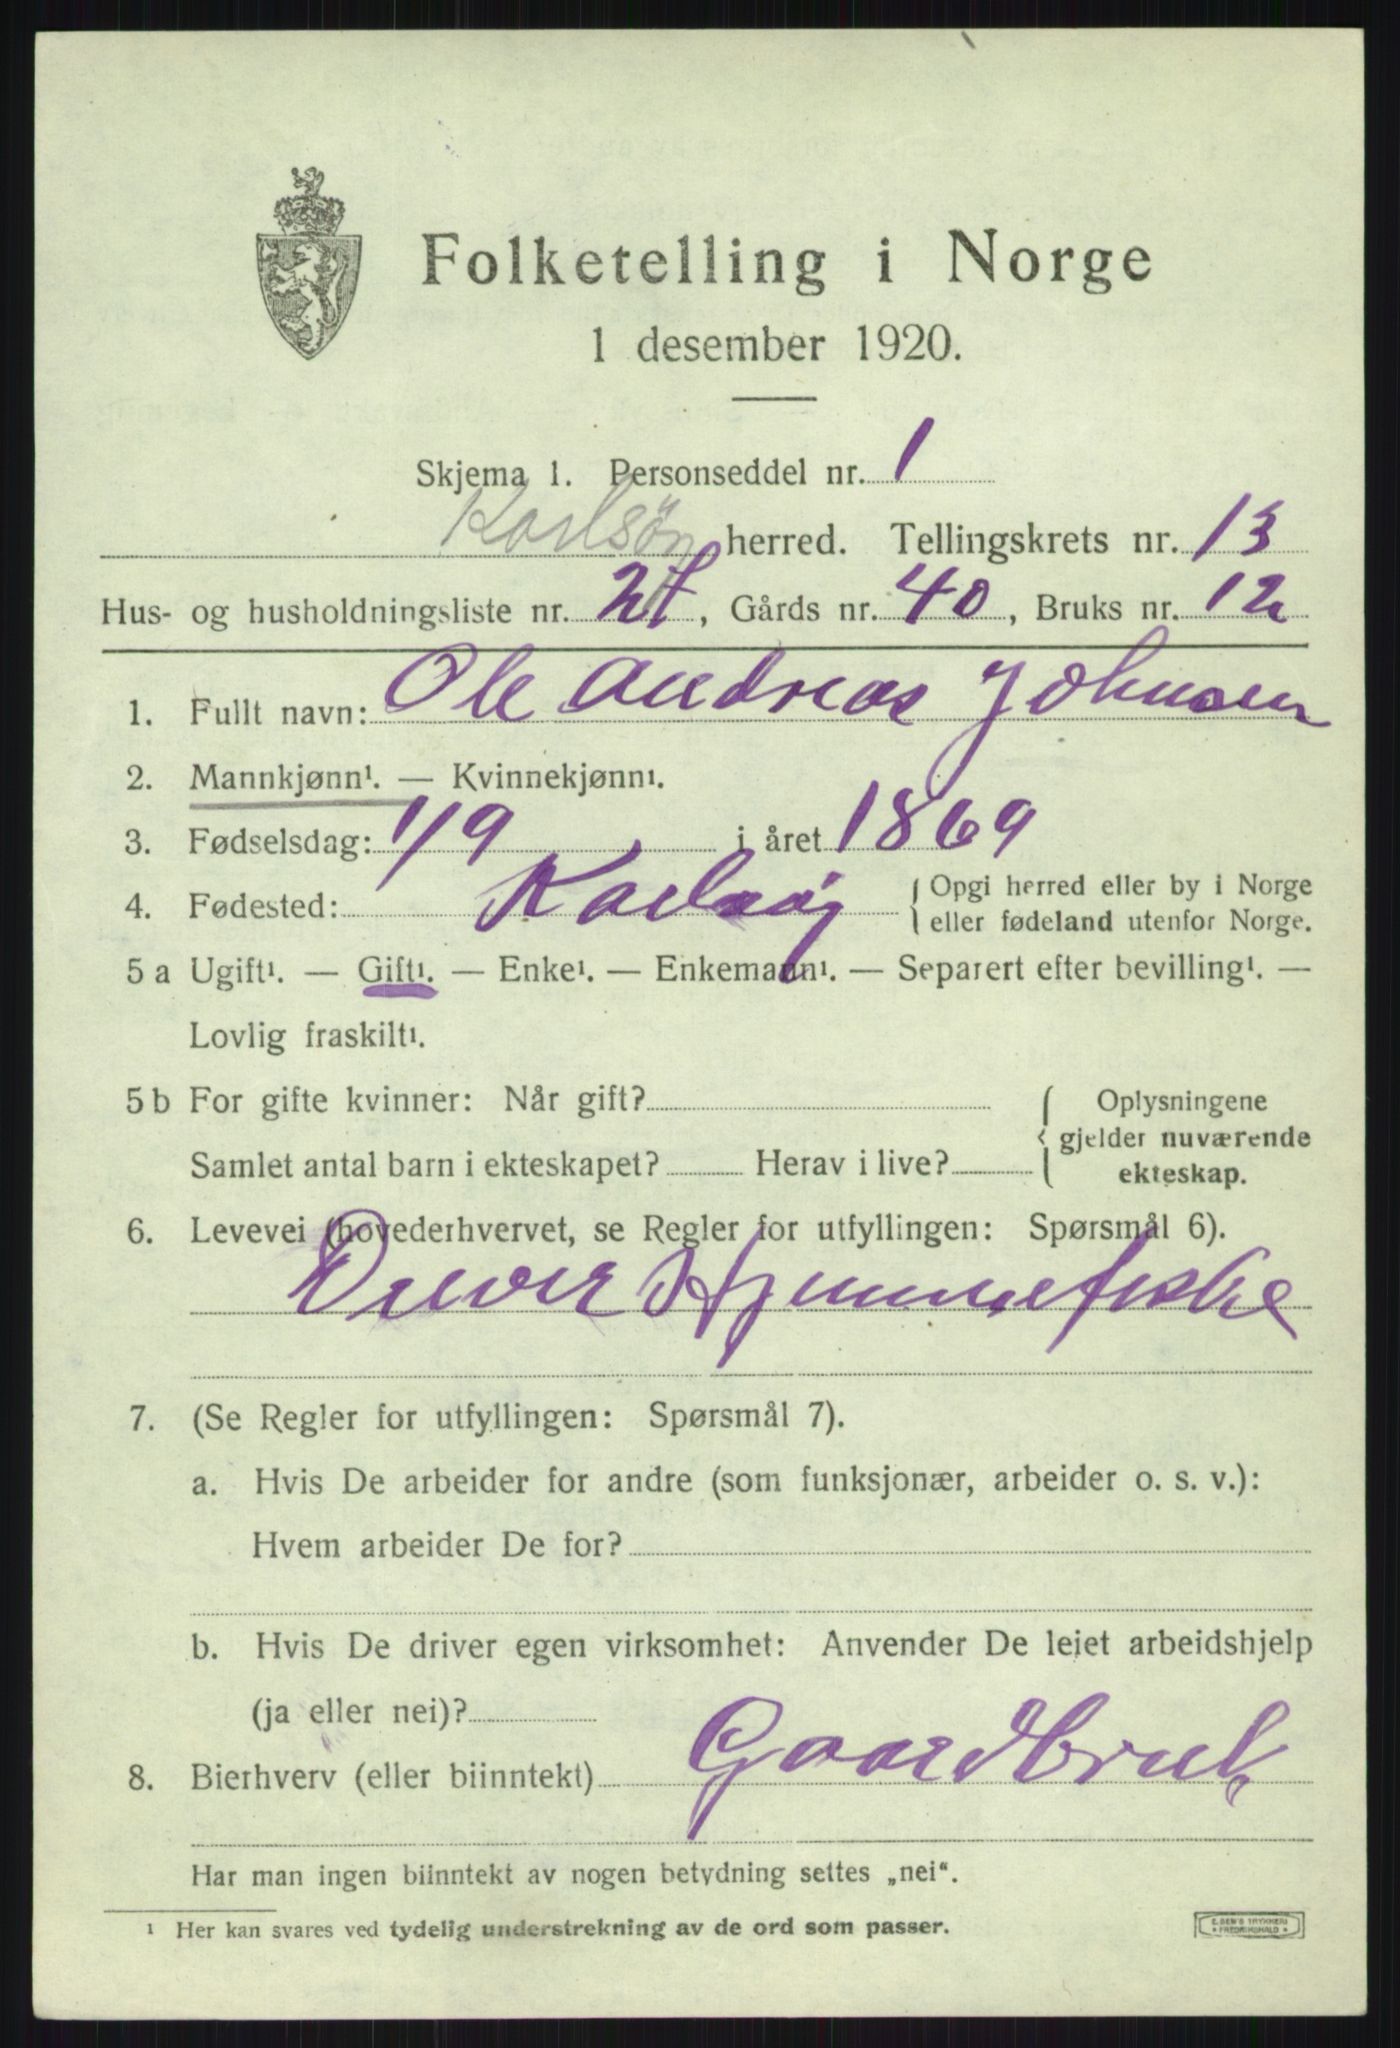 Folketelling i Norge
1 desember 1920.
Skjema 1. Personseddel nr. 1
Karlsøy herred. Tellingskrets nr. 13
Hus- og husholdningsliste nr. 27, Gårds nr. 40, Bruks nr. 12
1. Fullt navn: Ole Andreas Johnsen
2. Mannkjønn¹. — Kvinnekjønn¹.
3. Fødselsdag: 1/9 i året 1869
4. Fødested: Karlsøy { Opgi herred eller by i Norge
eller fødeland utenfor Norge.
5 a Ugift¹. — Gift¹. — Enke¹. — Enkemann¹. — Separert efter bevilling¹. —
Lovlig fraskilt¹.
5 b For gifte kvinner: Når gift?
Samlet antal barn i ekteskapet? Herav i live?
{ Oplysningene
gjelder nuværende
ekteskap.
6. Levevei (hovederhvervet, se Regler for utfyllingen: Spørsmål 6).
Driver Hjemmefiske
7. (Se Regler for utfyllingen: Spørsmål 7).
a. Hvis De arbeider for andre (som funksjonær, arbeider o. s. v.):
Hvem arbeider De for?
b. Hvis De driver egen virksomhet: Anvender De leiet arbeidshjelp
(ja eller nei)?
8. Bierhverv (eller biinntekt) Gaardbruk
Har man ingen biinntekt av nogen betydning settes „nei“.
¹ Her kan svares ved tydelig understrekning av de ord som passer.
E. SEM'S TRYKKERI
• FREDRIKSHALD •